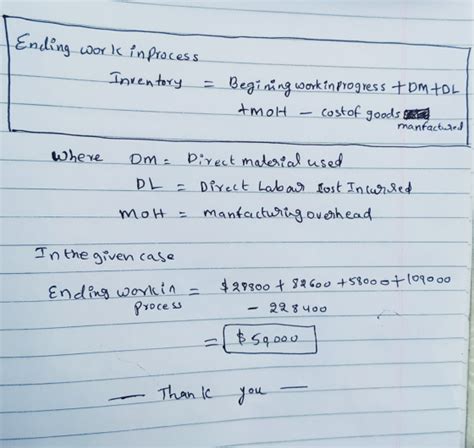 Ending work inprocess
Inventory = Begining workinprogress + DM + DL
+ MOH - cost of goods
manfactured
Where DM = Direct material used
DL = Direct Labar cost Incurred
MOH = manfacturing overhead
In the given case
Ending work in = $28800 + 82600 + 58000 + 109000
process - 228400
= $50000
— Thank you —